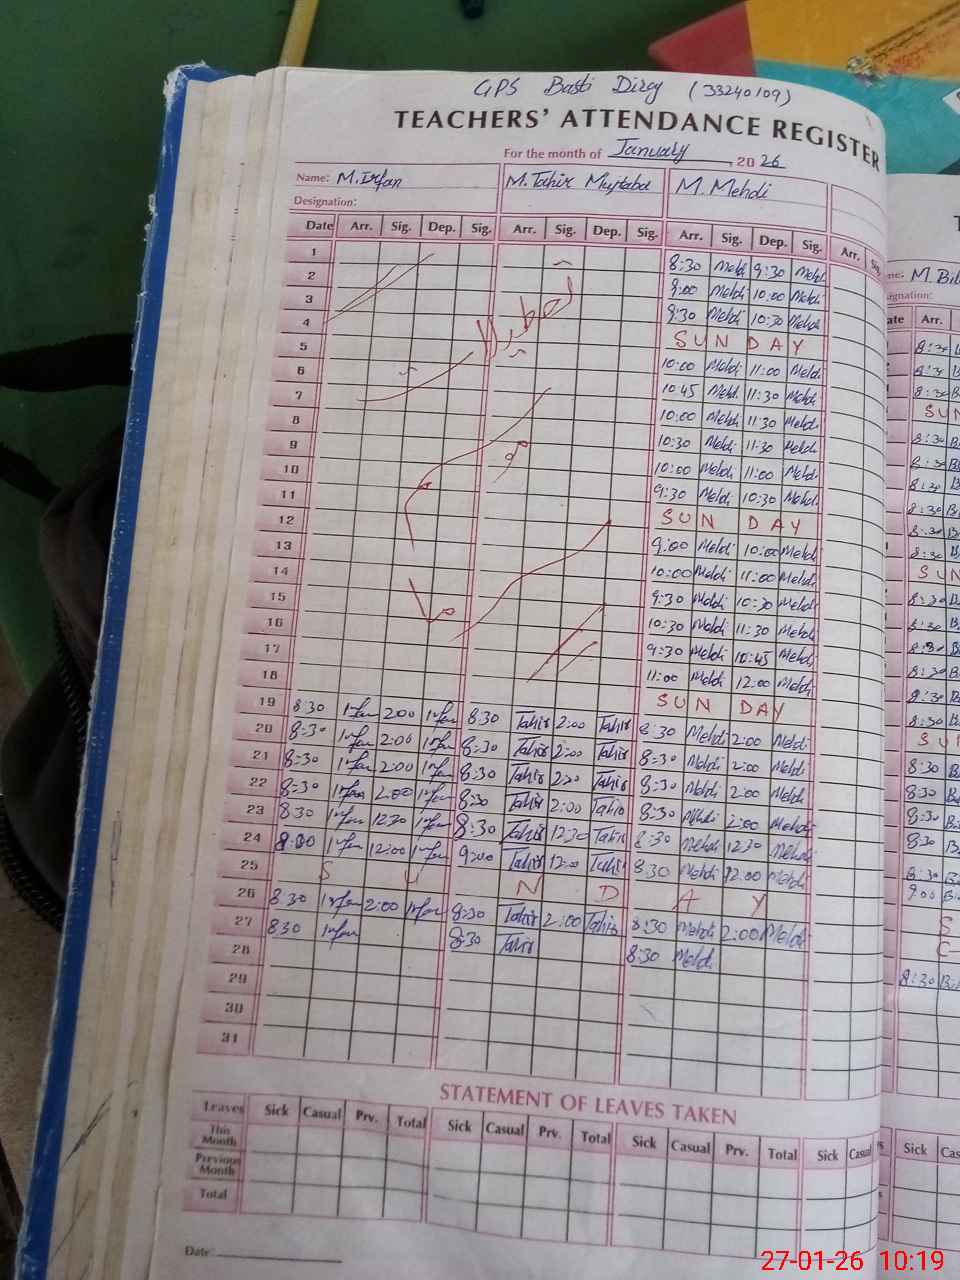 GPS Basti Diroy (33240109)
TEACHERS' ATTENDANCE REGISTER
For the month of January, 2026
Name: M. Irfan M. Tahir Mujtaba M. Mehdi
Designation:
Date Arr. Sig. Dep. Sig. Arr. Sig. Dep. Sig. Arr. Sig. Dep. Sig. Arr. Sig.
1 8:30 Mehdi 9:30 Mehdi
2 9:00 Mehdi 10:00 Mehdi
3 9:30 Mehdi 10:30 Mehdi
4 SUNDAY
5 10:00 Mehdi 11:00 Mehdi
6 10:45 Mehdi 11:30 Mehdi
7 10:00 Mehdi 11:30 Mehdi
8 10:30 Mehdi 11:30 Mehdi
9 10:00 Mehdi 11:00 Mehdi
10 9:30 Mehdi 10:30 Mehdi
11 SUNDAY
12 9:00 Mehdi 10:00 Mehdi
13 10:00 Mehdi 11:00 Mehdi
14 9:30 Mehdi 10:30 Mehdi
15 10:30 Mehdi 11:30 Mehdi
16 9:30 Mehdi 10:45 Mehdi
17 11:00 Mehdi 12:00 Mehdi
18 SUNDAY
19 8:30 Irfan 2:00 Irfan 8:30 Tahir 2:00 Tahir 8:30 Mehdi 2:00 Mehdi
20 8:30 Irfan 2:00 Irfan 8:30 Tahir 2:00 Tahir 8:30 Mehdi 2:00 Mehdi
21 8:30 Irfan 2:00 Irfan 8:30 Tahir Tahir 8:30 Mehdi 2:00 Mehdi
22 8:30 Irfan 2:00 Irfan 8:30 Tahir 2:00 Tahir 8:30 Mehdi 2:00 Mehdi
23 8:30 Irfan 12:30 Irfan 8:30 Tahir 12:30 Tahir 8:30 Mehdi 12:30 Mehdi
24 Irfan 12:00 Irfan 9:00 Tahir 12:00 Tahir 8:30 Mehdi 12:00 Mehdi
25 S U N D A Y
26 8:30 Irfan 2:00 Irfan 8:30 Tahir 2:00 Tahir 8:30 Mehdi 2:00 Mehdi
27 8:30 Irfan 8:30 Tahir 8:30 Mehdi
28
29
30
31
STATEMENT OF LEAVES TAKEN
Leaves Sick Casual Prv. Total Sick Casual Prv. Total Sick Casual Prv. Total Sick Casual
This Month
Previous Month
Total
Date:
M. Bil
Arr.
8:30
8:30
SUN
8:30
8:30
8:30
8:30
8:30
SUN
8:30
8:30
8:30
8:30
8:30
8:30
SUN
8:30
8:30
8:30
8:30
8:30
9:00
S
8:30
Sick Cas
27-01-26 10:19